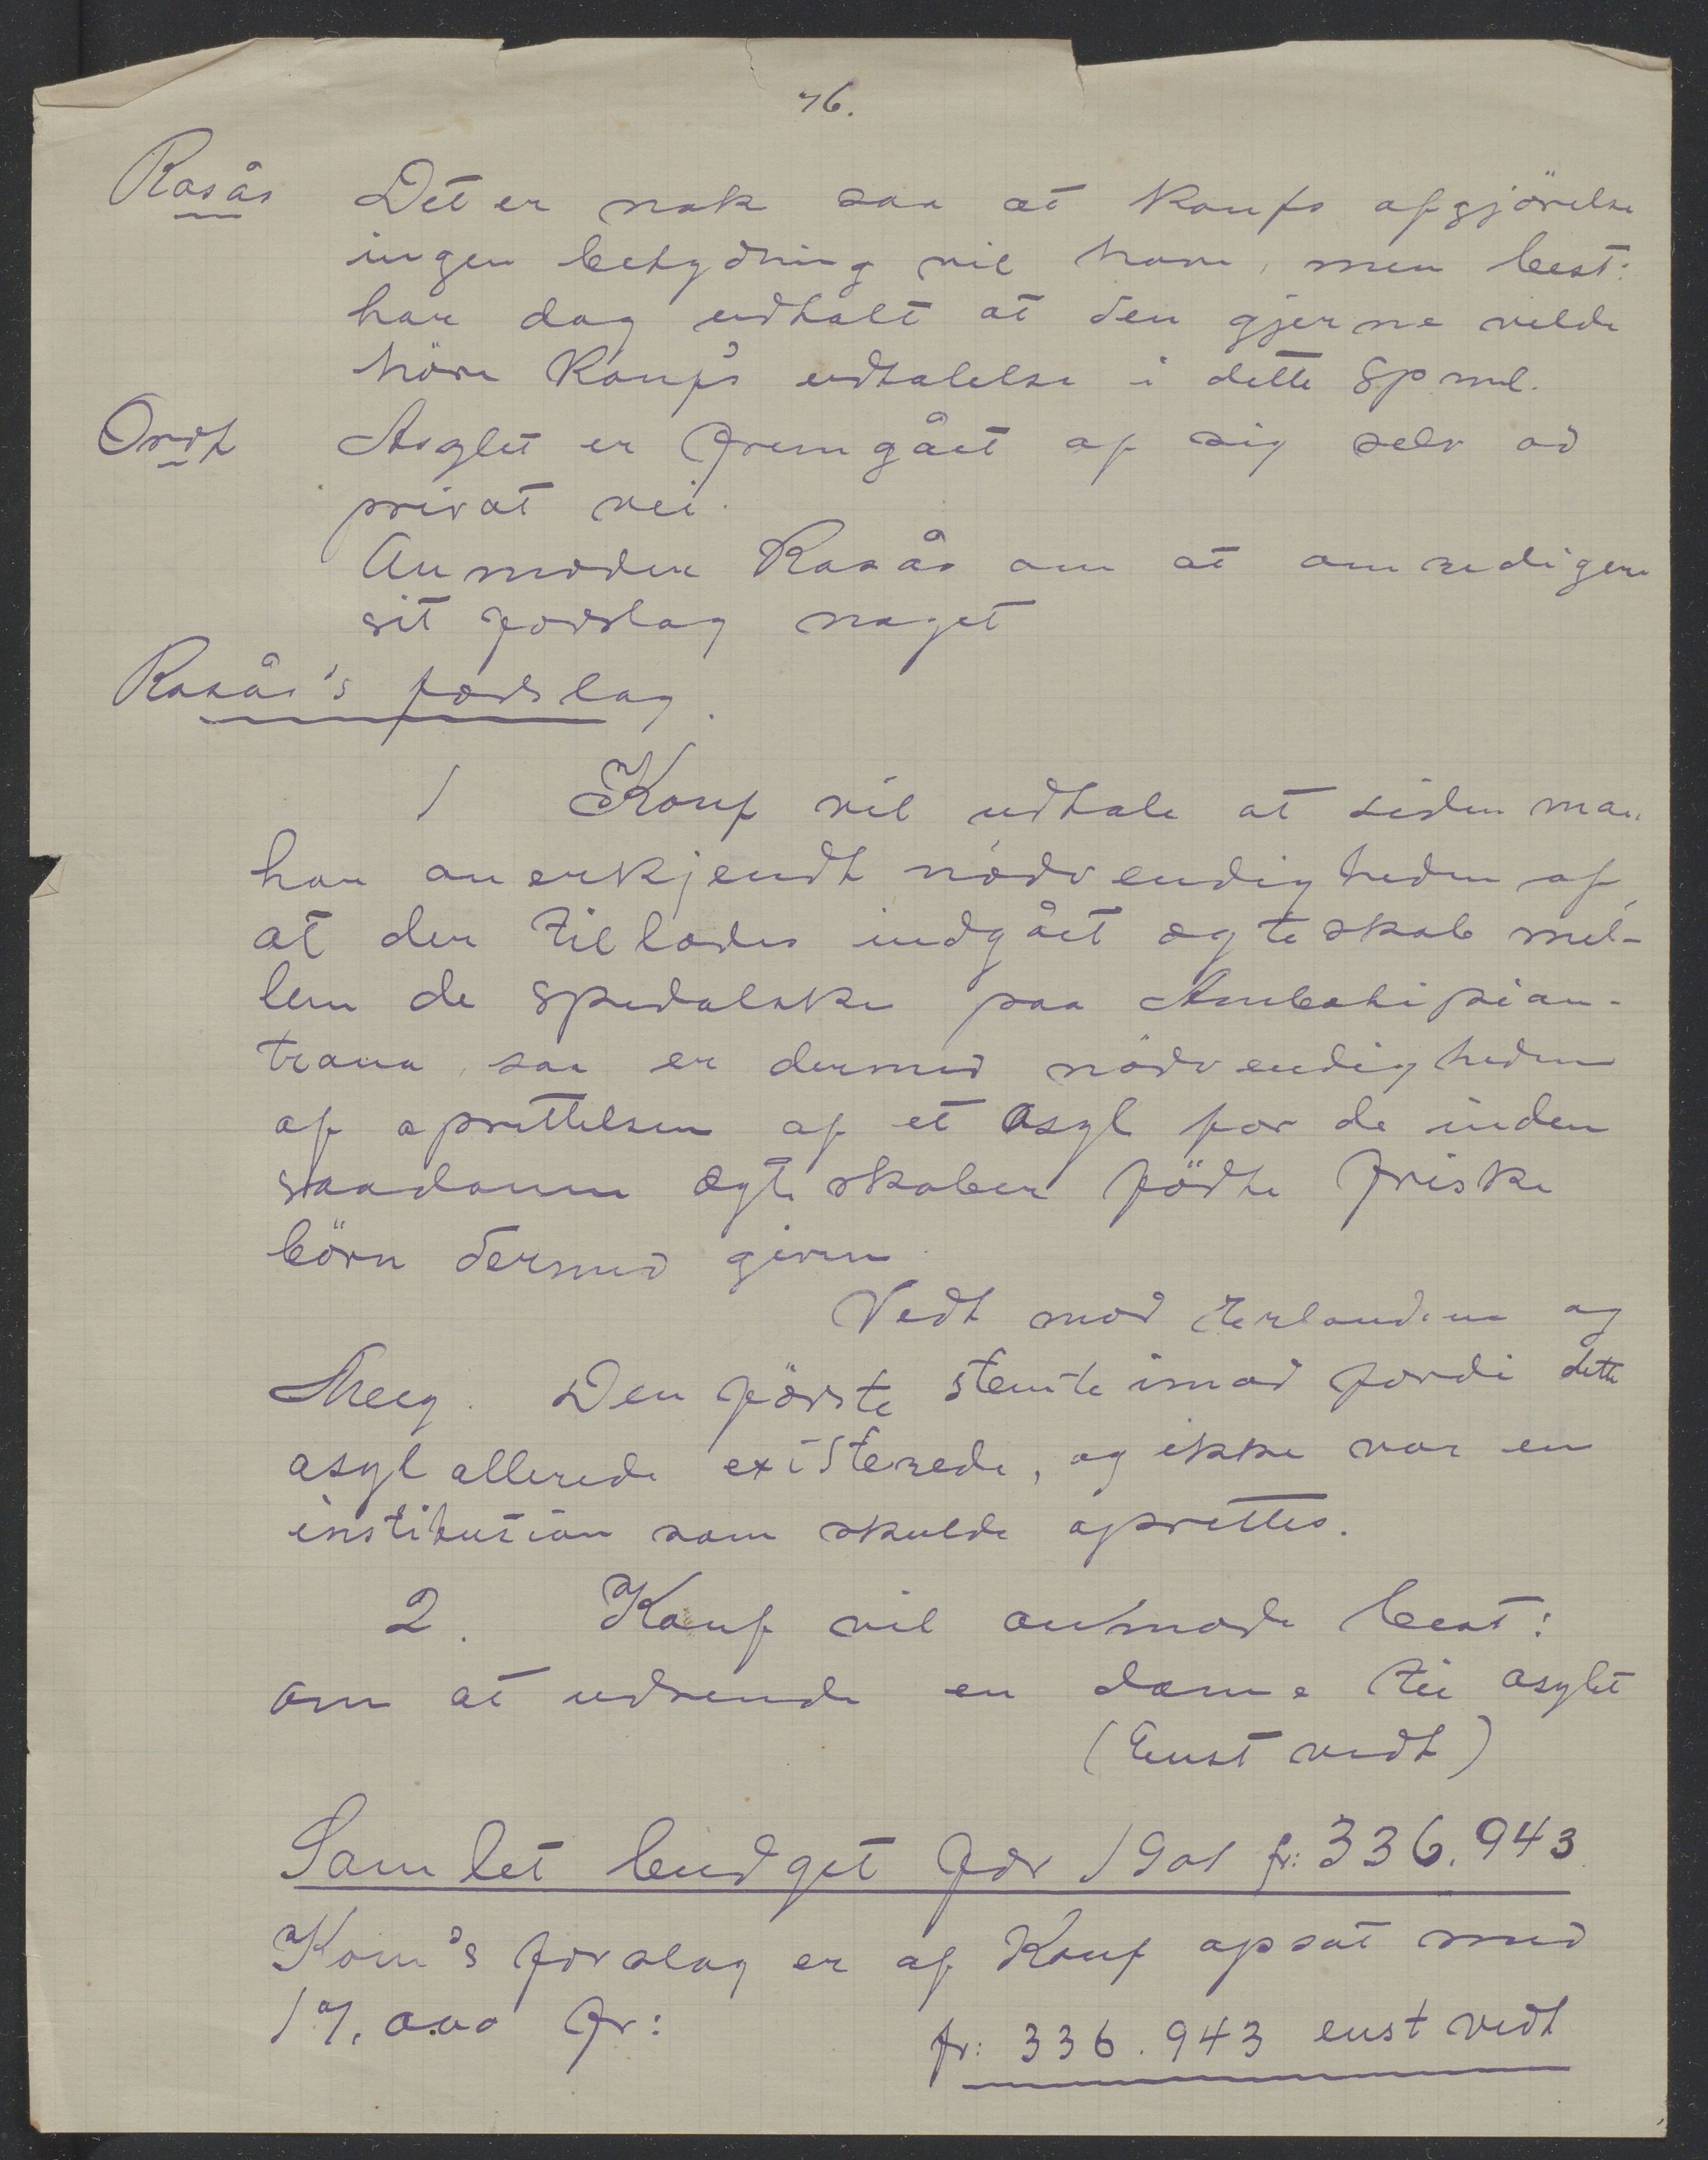 76.
Rosås Det er nok saa at Konfs afgjörelse
ingen betydning vil have, men best:
har dog udtalt at den gjerne vilde
höre Konfs udtalelse i dette spml.
Ordt Asylet er fremgået af sig selv ad
privat vei.
Anmoder Rosås om at omredigere
sit forslag noget
Rosås's forslag.
1 Konf vil udtale at siden man
har anerkjendt nödvendigheden af
at der tillades indgået ægteskab mel-
lem de spedalske paa Ambohipian-
trana, saa er dermed nödvendigheden
af oprettelsen af et asyl for de inden
saadanne ægteskaber födte friske
börn dermed given.
Vedt mod Erlandsen og
Meeg. Den förste stemte imod fordi dette
asyl allerede existerede, og ikke var en
institution som skulde oprettes.
2. Konf vil anmode best:
om at udsende en dame til asylet
(Enst vedt)
Samlet budget for 1901 fr: 336.943
Kom's forslag er af Konf opsat med
17.000 fr:
fr: 336.943 enst vedt